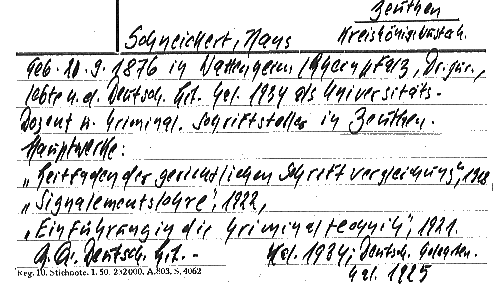 Zeuthen
Schneickert, Hans Kreis Königswusterh.
Geb. 20.9.1876 in (Bayernpfalz), Dr. jur.,
lebte n. d. Deutsch. Lit. Kal. 1934 als Universitäts-
Dozent u. Kriminal. Schriftsteller in Zeuthen.
Hauptwerke:
„Leitfaden der gerichtlichen Schriftvergleichung", 1918,
„Signalementslehre", 1922,
„Einführung in die Kriminaltechnik", 1921.
Deutsch. Lit.- Kal. 1934; Deutsch. Gelehrten.
Kal. 1925
Reg. 10. Stichnote. I. 50. 232000. A.803, S. 4062